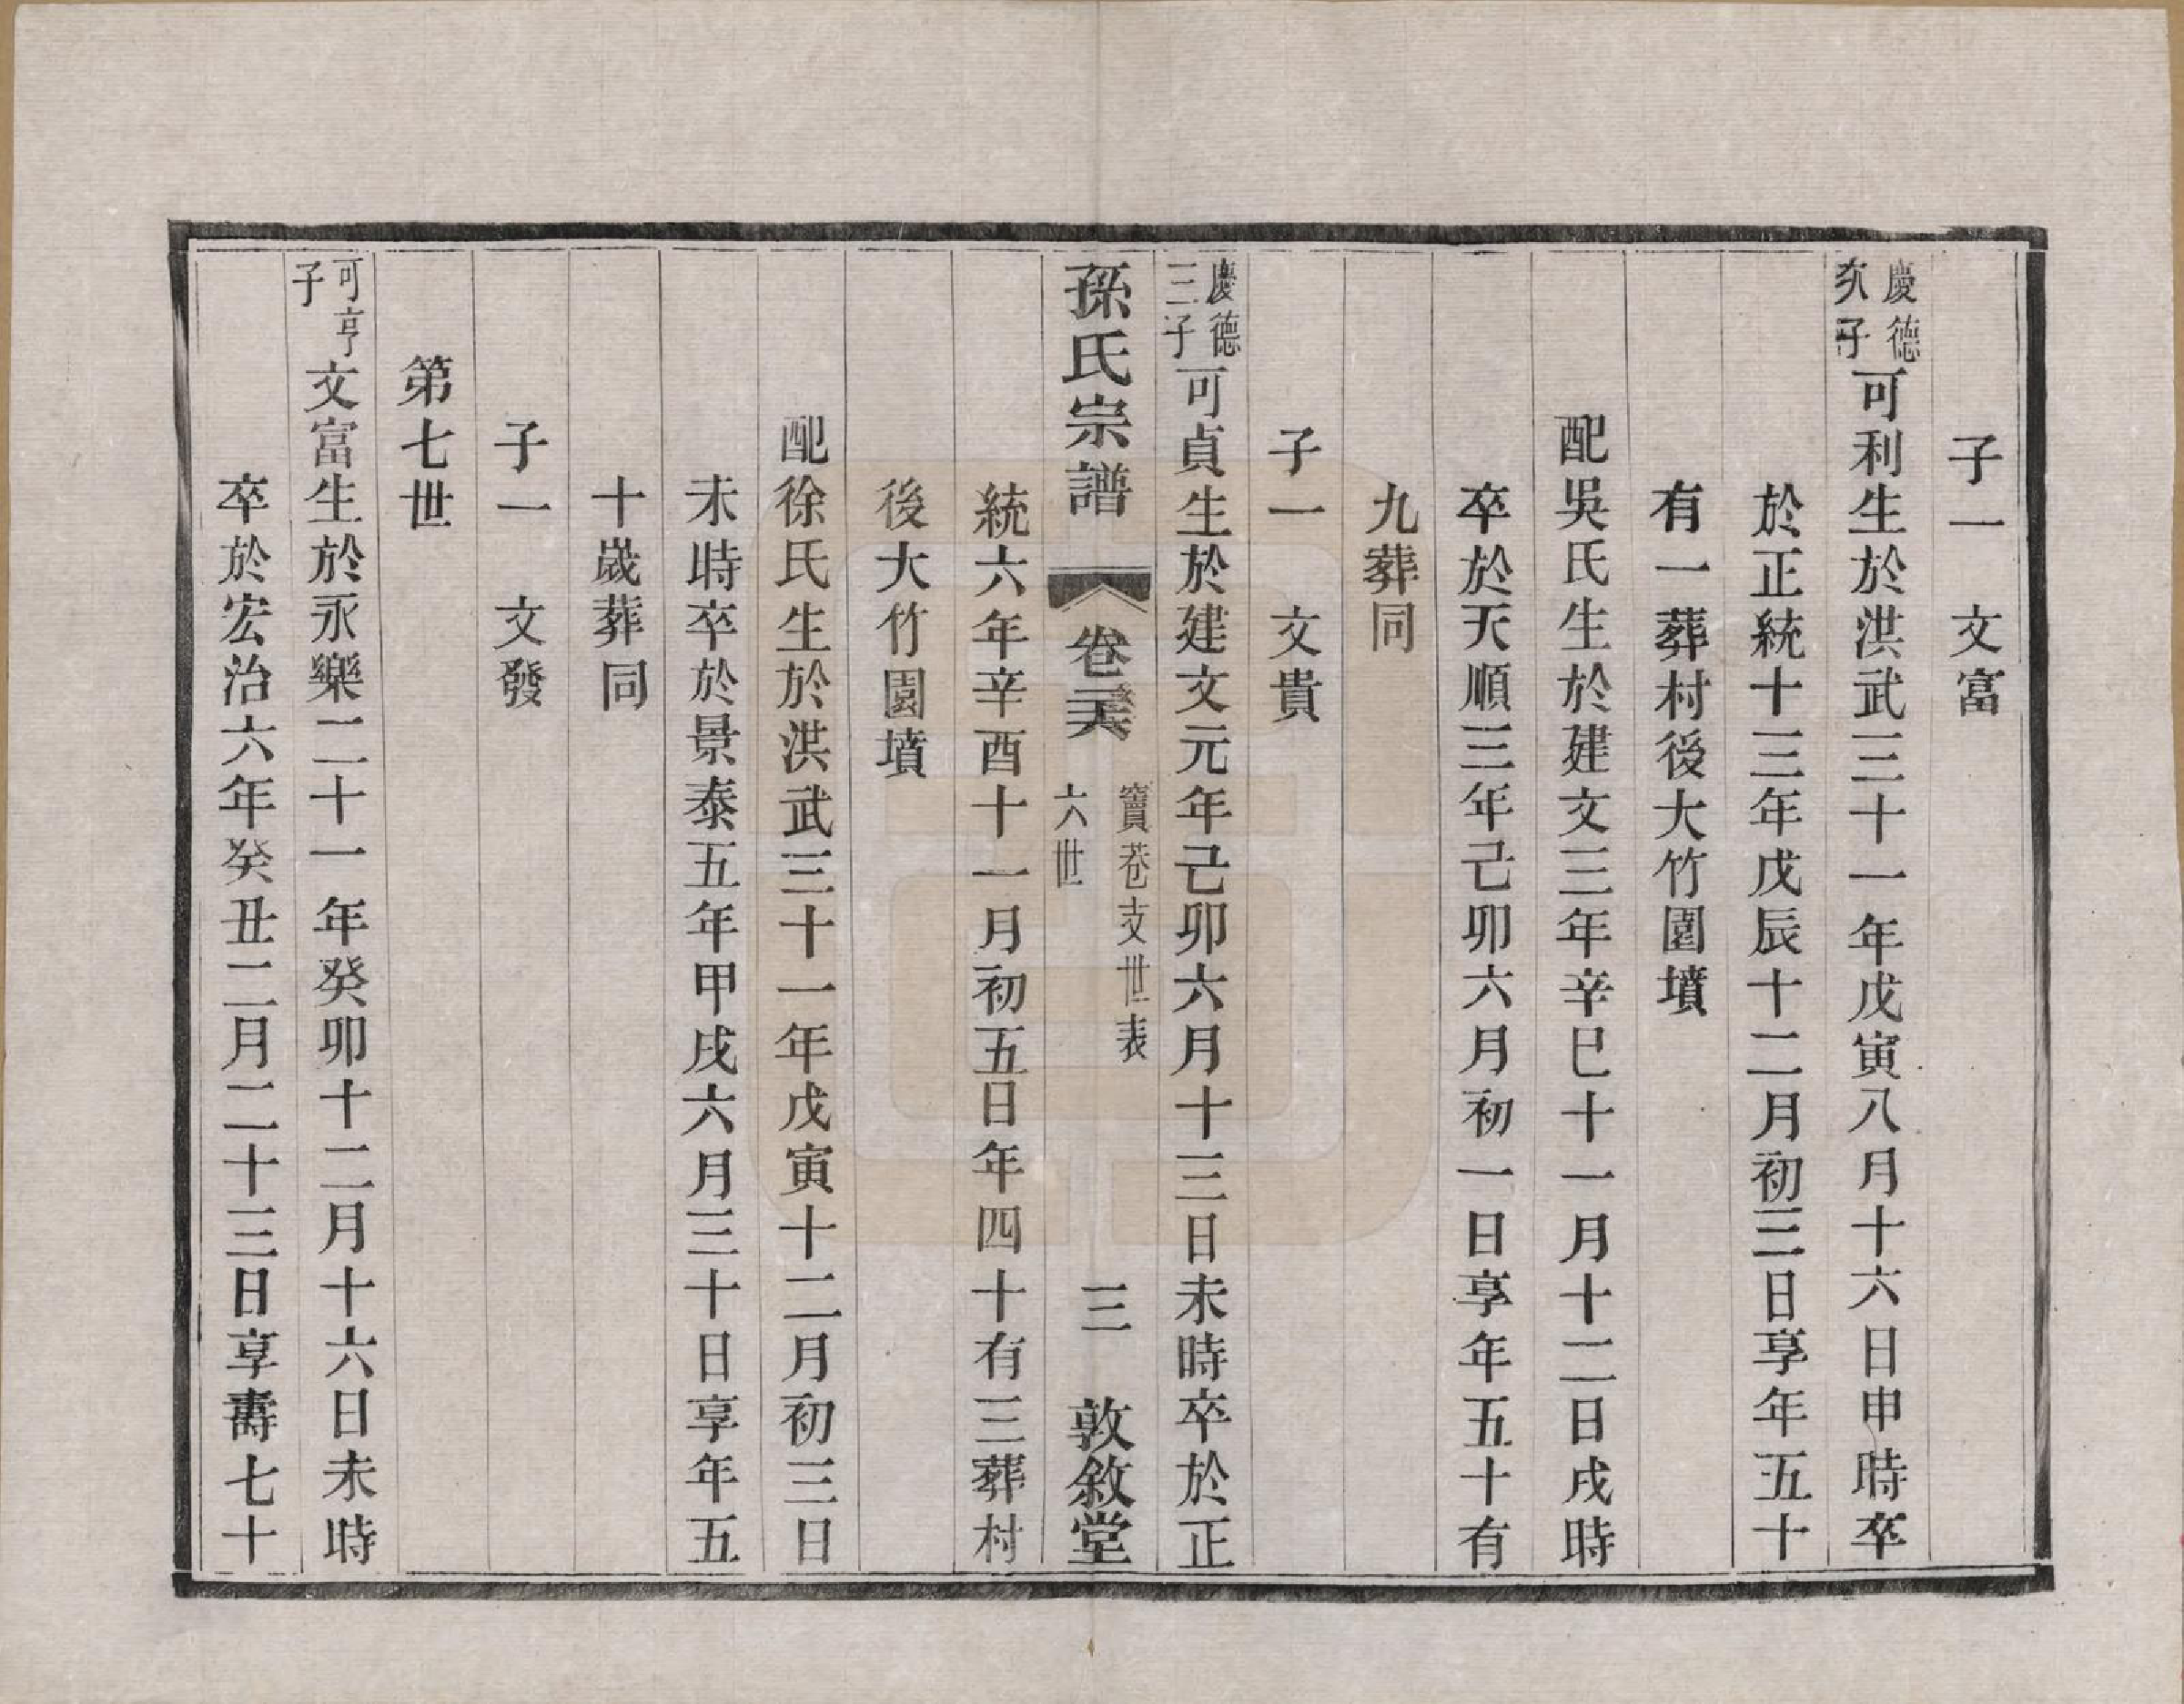 子一　文富
慶德次子可利生於洪武三十一年戊寅八月十六日申時卒
於正統十三年戊辰十二月初三日享年五十
有一葬村後大竹園墳
配吳氏生於建文三年辛巳十一月十二日戌時
卒於天順三年己卯六月初一日享年五十有
九葬同
子一　文貴
慶德三子可貞生於建文元年己卯六月十三日未時卒於正
孫氏宗譜　卷　寶巷支世表　六世　三　敦敘堂
統六年辛酉十一月初五日年四十有三葬村
後大竹園墳
配徐氏生於洪武三十一年戊寅十二月初三日
未時卒於景泰五年甲戌六月三十日享年五
十歲葬同
子一　文發
第七世
可亨子文富生於永樂二十一年癸卯十二月十六日未時
卒於宏治六年癸丑二月二十三日享壽七十